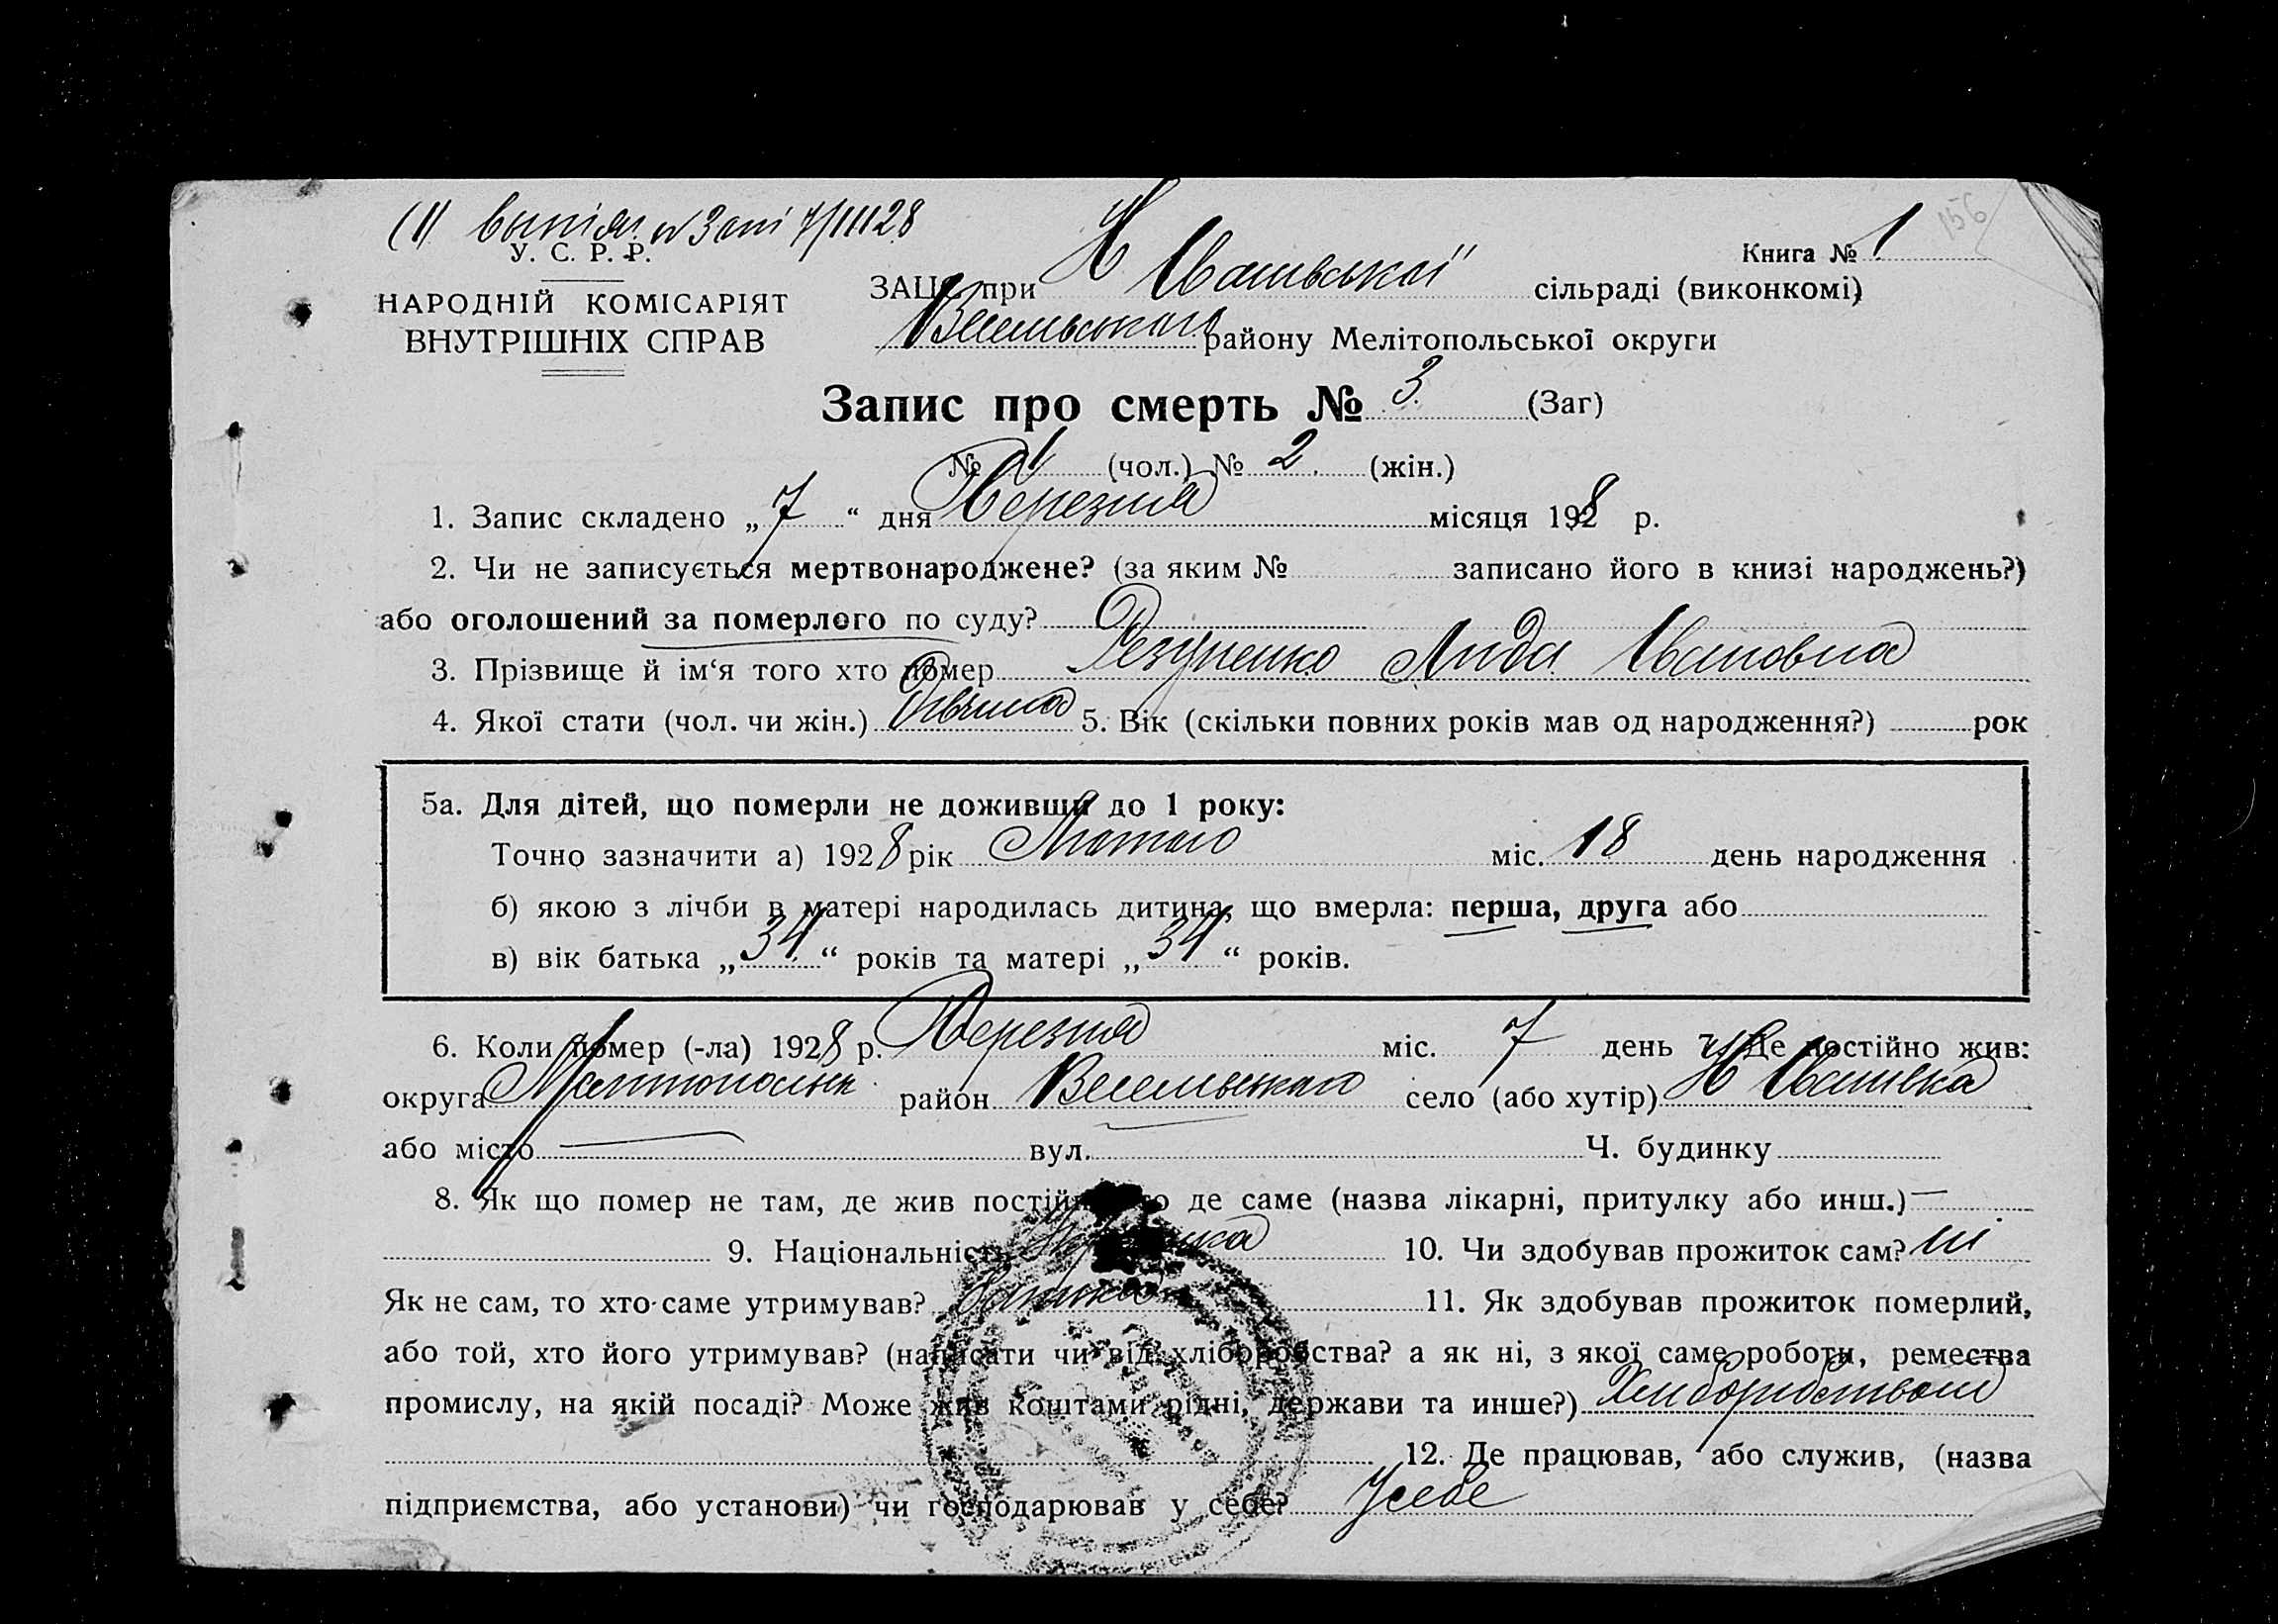 (1) 7/III 28
У. С. Р. Р.
Книга № 1
156
НАРОДНІЙ КОМІСАРІЯТ
ВНУТРІШНІХ СПРАВ
ЗАЦС при Н Івашвської сільраді (виконкомі)
Весельського району Мелітопольської округи
Запис про смерть № 3 (Заг)
№ 1 (чол.) № 2. (жін.)
1. Запис складено „7“ дня Березня місяця 1928 р.
2. Чи не записується мертвонароджене? (за яким № записано його в книзі народжень?)
або оголошений за померлого по суду?
3. Прізвище й ім‘я того хто помер Резуненко Лида Івановна
4. Якої стати (чол. чи жін.) Дівчина 5. Вік (скільки повних років мав од народження?) рок
5а. Для дітей, що померли не доживши до 1 року:
Точно зазначити а) 1928 рік Лютаго міс. 18 день народження
б) якою з лічби в матері народилась дитина, що вмерла: перша, друга або
в) вік батька „34“ років та матері „34“ років.
6. Коли помер (-ла) 1928 р. Березня міс. 7 день 7. Де постійно жив:
округа Мелітопольськ район Весельського село (або хутір) Н Івашвка
або місто — вул. Ч. будинку
8. Як що помер не там, де жив постійно, то де саме (назва лікарні, притулку або инш.) —
9. Національність 10. Чи здобував прожиток сам? ні
Як не сам, то хто саме утримував? батько 11. Як здобував прожиток померлий,
або той, хто його утримував? (написати чи від хліборобства? а як ні, з якої саме роботи, ремества
промислу, на якій посаді? Може жив коштами рідні, держави та инше?) Хліборобством
12. Де працював, або служив, (назва
підприємства, або установи) чи господарював у себе? У себе